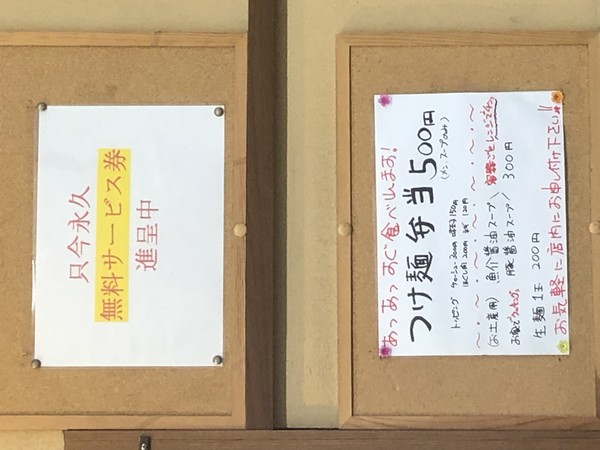 只今永久
無料サービス券
進呈中
あつあつ すぐ食べれます!
つけ麺 弁当 500円
(メン、スープのみ)
トッピング チャーシュー300円 味玉150円
ほぐし肉 200円 120円
(お土産用) 魚介醤油スープ 容器ごとレンジでチン
お家でクッキング。 豚醤油スープ 300円
生麺 1玉 200円
お気軽に店内にお申し付け下さい!!